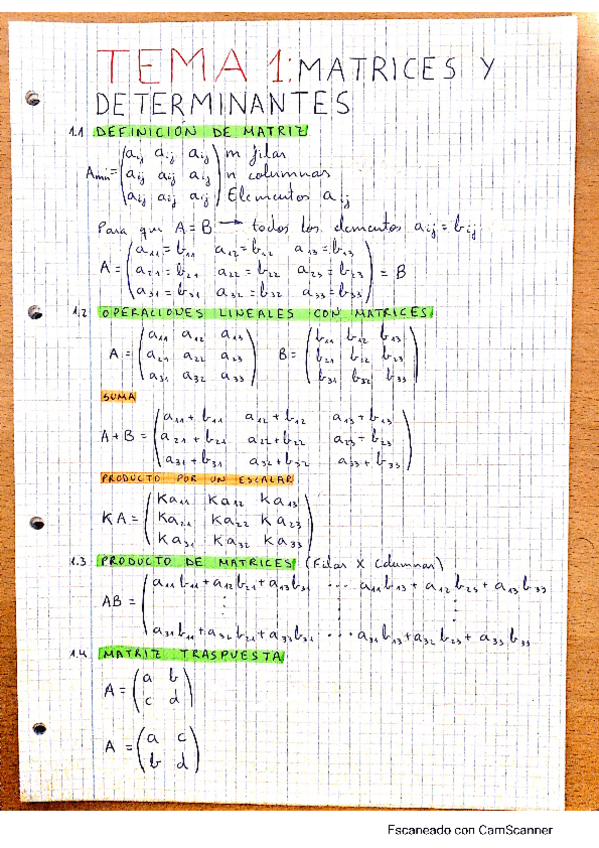 TEMA 1: MATRICES Y
DETERMINANTES
1.1 DEFINICIÓN DE MATRIZ
Amn = (aij aij aij) m filas
(aij aij aij) n columnas
(aij aij aij) Elementos aij
Para que A = B → todos los elementos aij = bij
(a11 = b11 a12 = b12 a13 = b13)
A = (a21 = b21 a22 = b22 a23 = b23) = B
(a31 = b31 a32 = b32 a33 = b33)
1.2 OPERACIONES LINEALES CON MATRICES
(a11 a12 a13) (b11 b12 b13)
A = (a21 a22 a23) B = (b21 b22 b23)
(a31 a32 a33) (b31 b32 b33)
SUMA
(a11 + b11 a12 + b12 a13 + b13)
A + B = (a21 + b21 a22 + b22 a23 - b23)
(a31 + b31 a32 + b32 a33 + b33)
PRODUCTO POR UN ESCALAR
(Ka11 Ka12 Ka13)
KA = (Ka21 Ka22 Ka23)
(Ka31 Ka32 Ka33)
1.3 PRODUCTO DE MATRICES (Filas X Columnas)
(a11b11 + a12b21 + a13b31 ... a11b13 + a12b23 + a13b33)
AB = ( ⋮ ⋮ ⋮ )
(a31b11 + a32b21 + a33b31 ... a31b13 + a32b23 + a33b33
1.4 MATRIZ TRASPUESTA
A = (a b)
(c d)
A = (a c)
(b d)
Escaneado con CamScanner